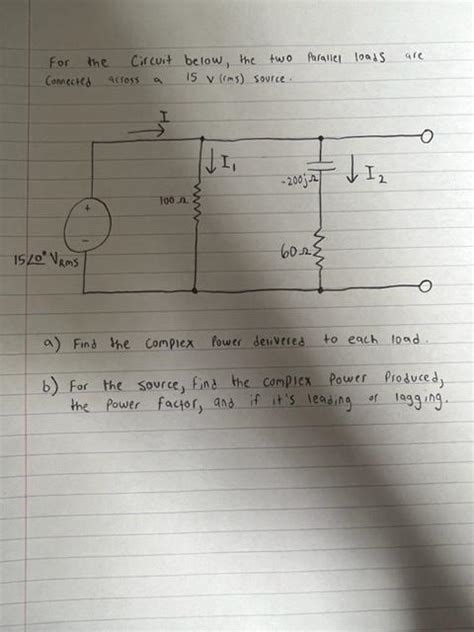 For the Circuit below, the two Parallel loads are
Connected across a 15 V (rms) source.
I
I₁
-200jΩ
I₂
100Ω
+
60Ω
-
15∠0° VRMS
a) Find the Complex Power delivered to each load.
b) For the source, find the complex Power Produced,
the Power factor, and if it's leading or lagging.